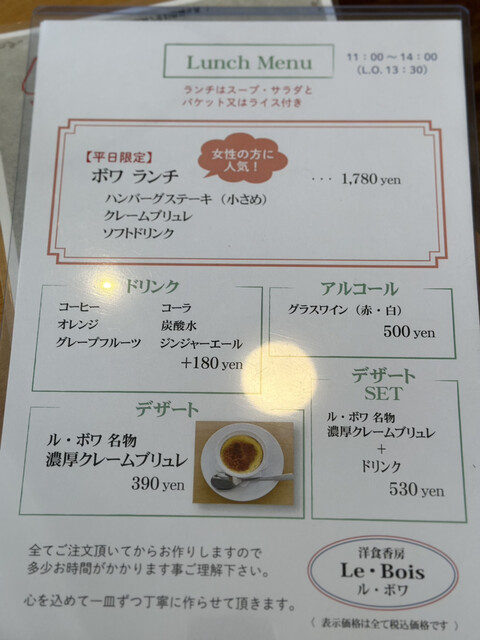 Lunch Menu
11:00〜14:00
(L.O. 13:30)
ランチはスープ・サラダと
バケット又はライス付き
【平日限定】
女性の方に
人気！
ボワ ランチ
・・・ 1,780 yen
ハンバーグステーキ（小さめ）
クレームブリュレ
ソフトドリンク
ドリンク
コーヒー コーラ
オレンジ 炭酸水
グレープフルーツ ジンジャーエール
+180 yen
アルコール
グラスワイン（赤・白）
500 yen
デザート
ル・ボワ 名物
濃厚クレームブリュレ
390 yen
デザート
SET
ル・ボワ 名物
濃厚クレームブリュレ
+
ドリンク
530 yen
全てご注文頂いてからお作りしますので
多少お時間がかかります事ご理解下さい。
心を込めて一皿ずつ丁寧に作らせて頂きます。
洋食香房
Le・Bois
ル・ボワ
（ 表示価格は全て税込価格です ）